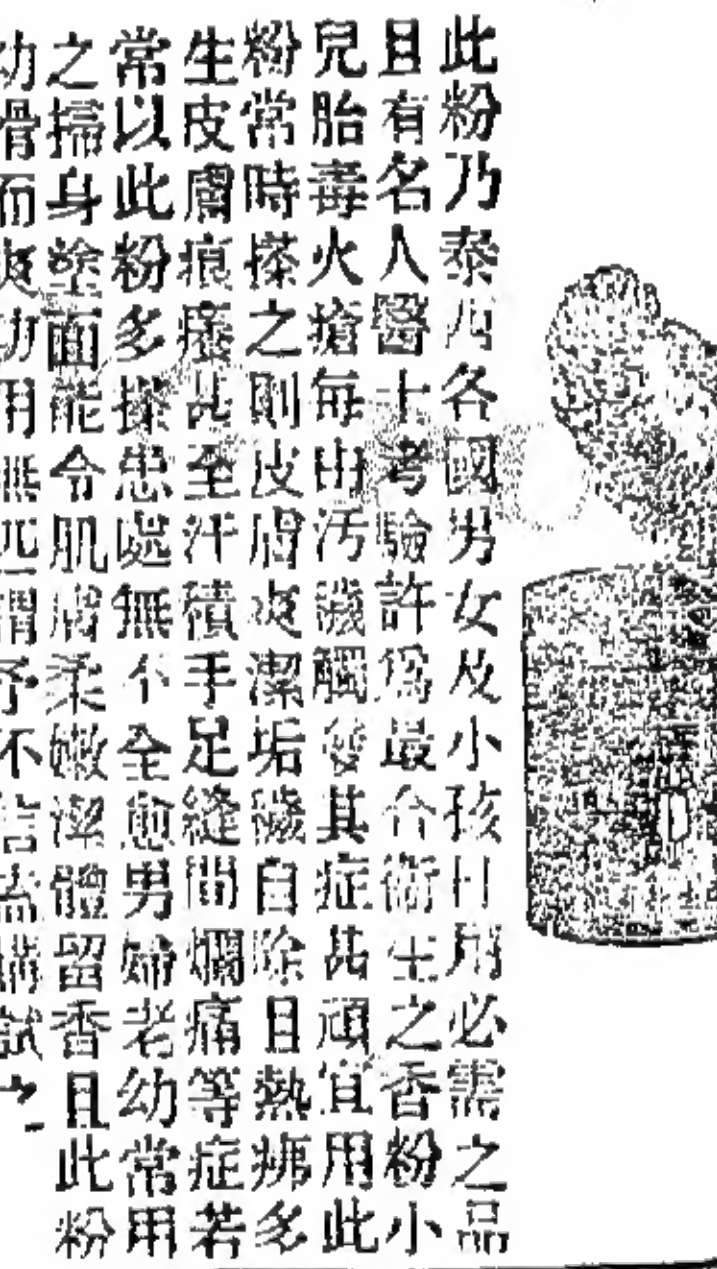 此粉乃泰西各國男女及小孩日用必需之品
且有名人醫士考驗許為最合衛生之香粉小
兒胎毒火瘡每由污濊觸發其症甚頑宜用此
粉常時搽之則皮膚爽潔垢穢自除且熱痱多
生皮膚痕癢甚至汗積手足縫間爛痛等症若
常以此粉多搽患處無不全愈男婦老幼常用
之掃身塗面能令肌膚柔嫩潔體留香且此粉
幼滑而爽功用無匹謂予不信盍購試之